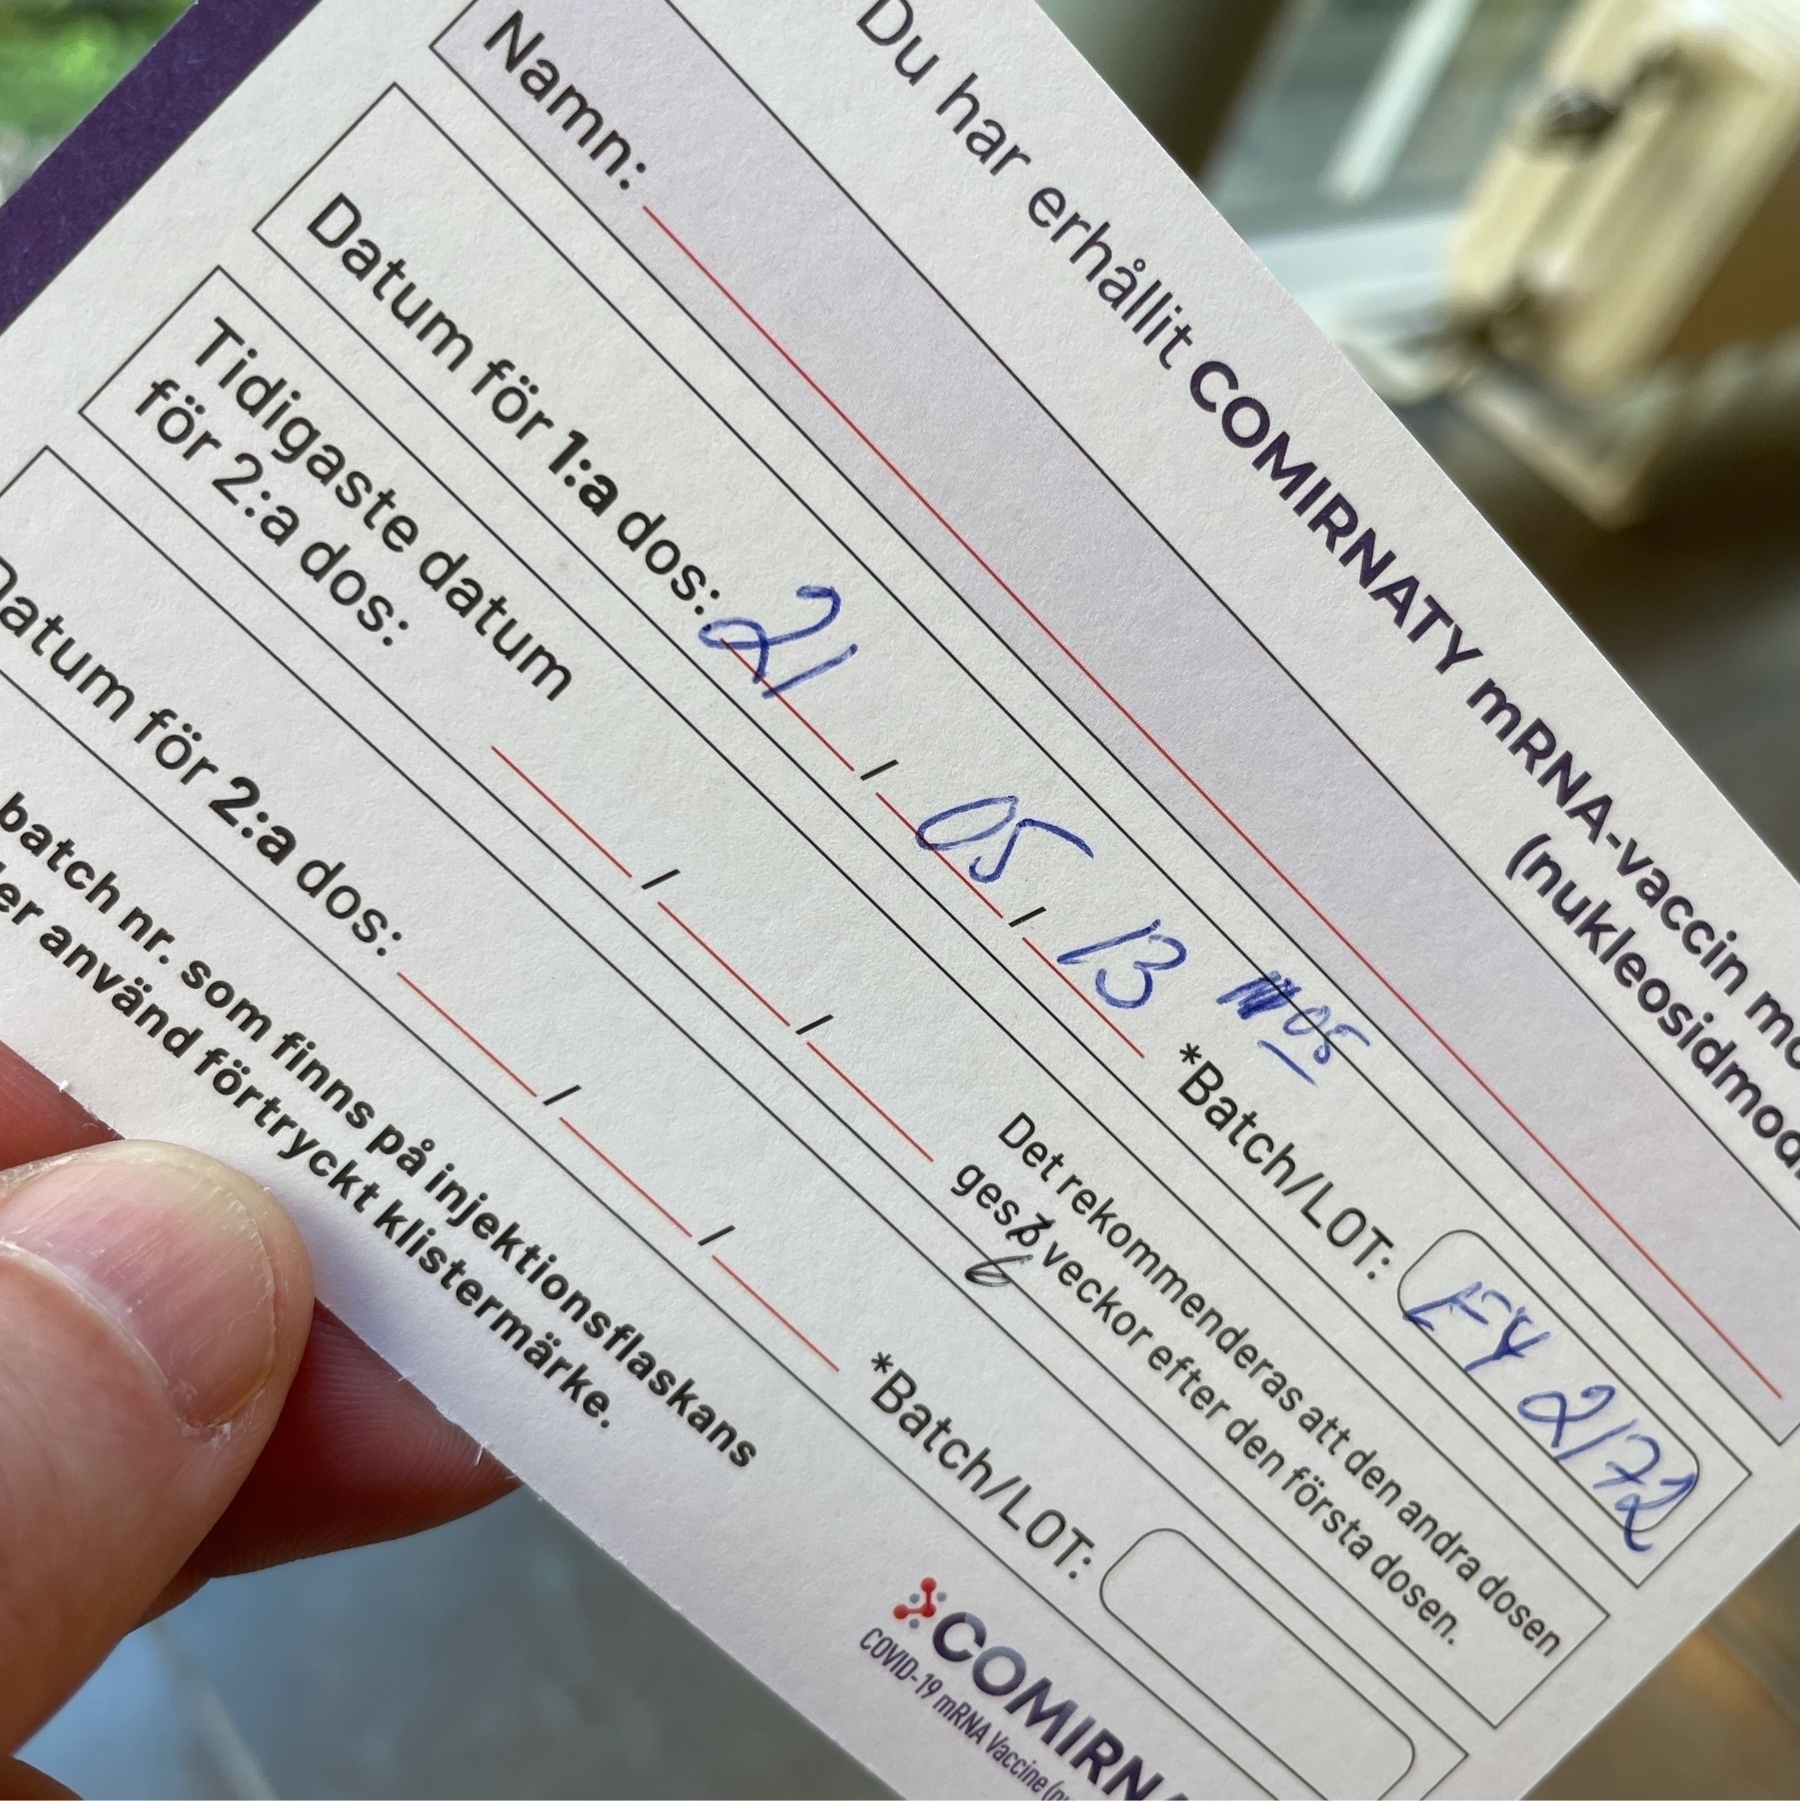 Du har erhållit COMIRNATY mRNA-vaccin mo
(nukleosidmod
Namn:
Datum för 1:a dos: 21 / 05 / 13 05
*Batch/LOT: EY 2172
Tidigaste datum
för 2:a dos: / /
Det rekommenderas att den andra dosen
ges 6 veckor efter den första dosen.
Datum för 2:a dos: / /
*Batch/LOT:
batch nr. som finns på injektionsflaskans
er använd förtryckt klistermärke.
COMIRNA
COVID-19 mRNA Vaccine (nu